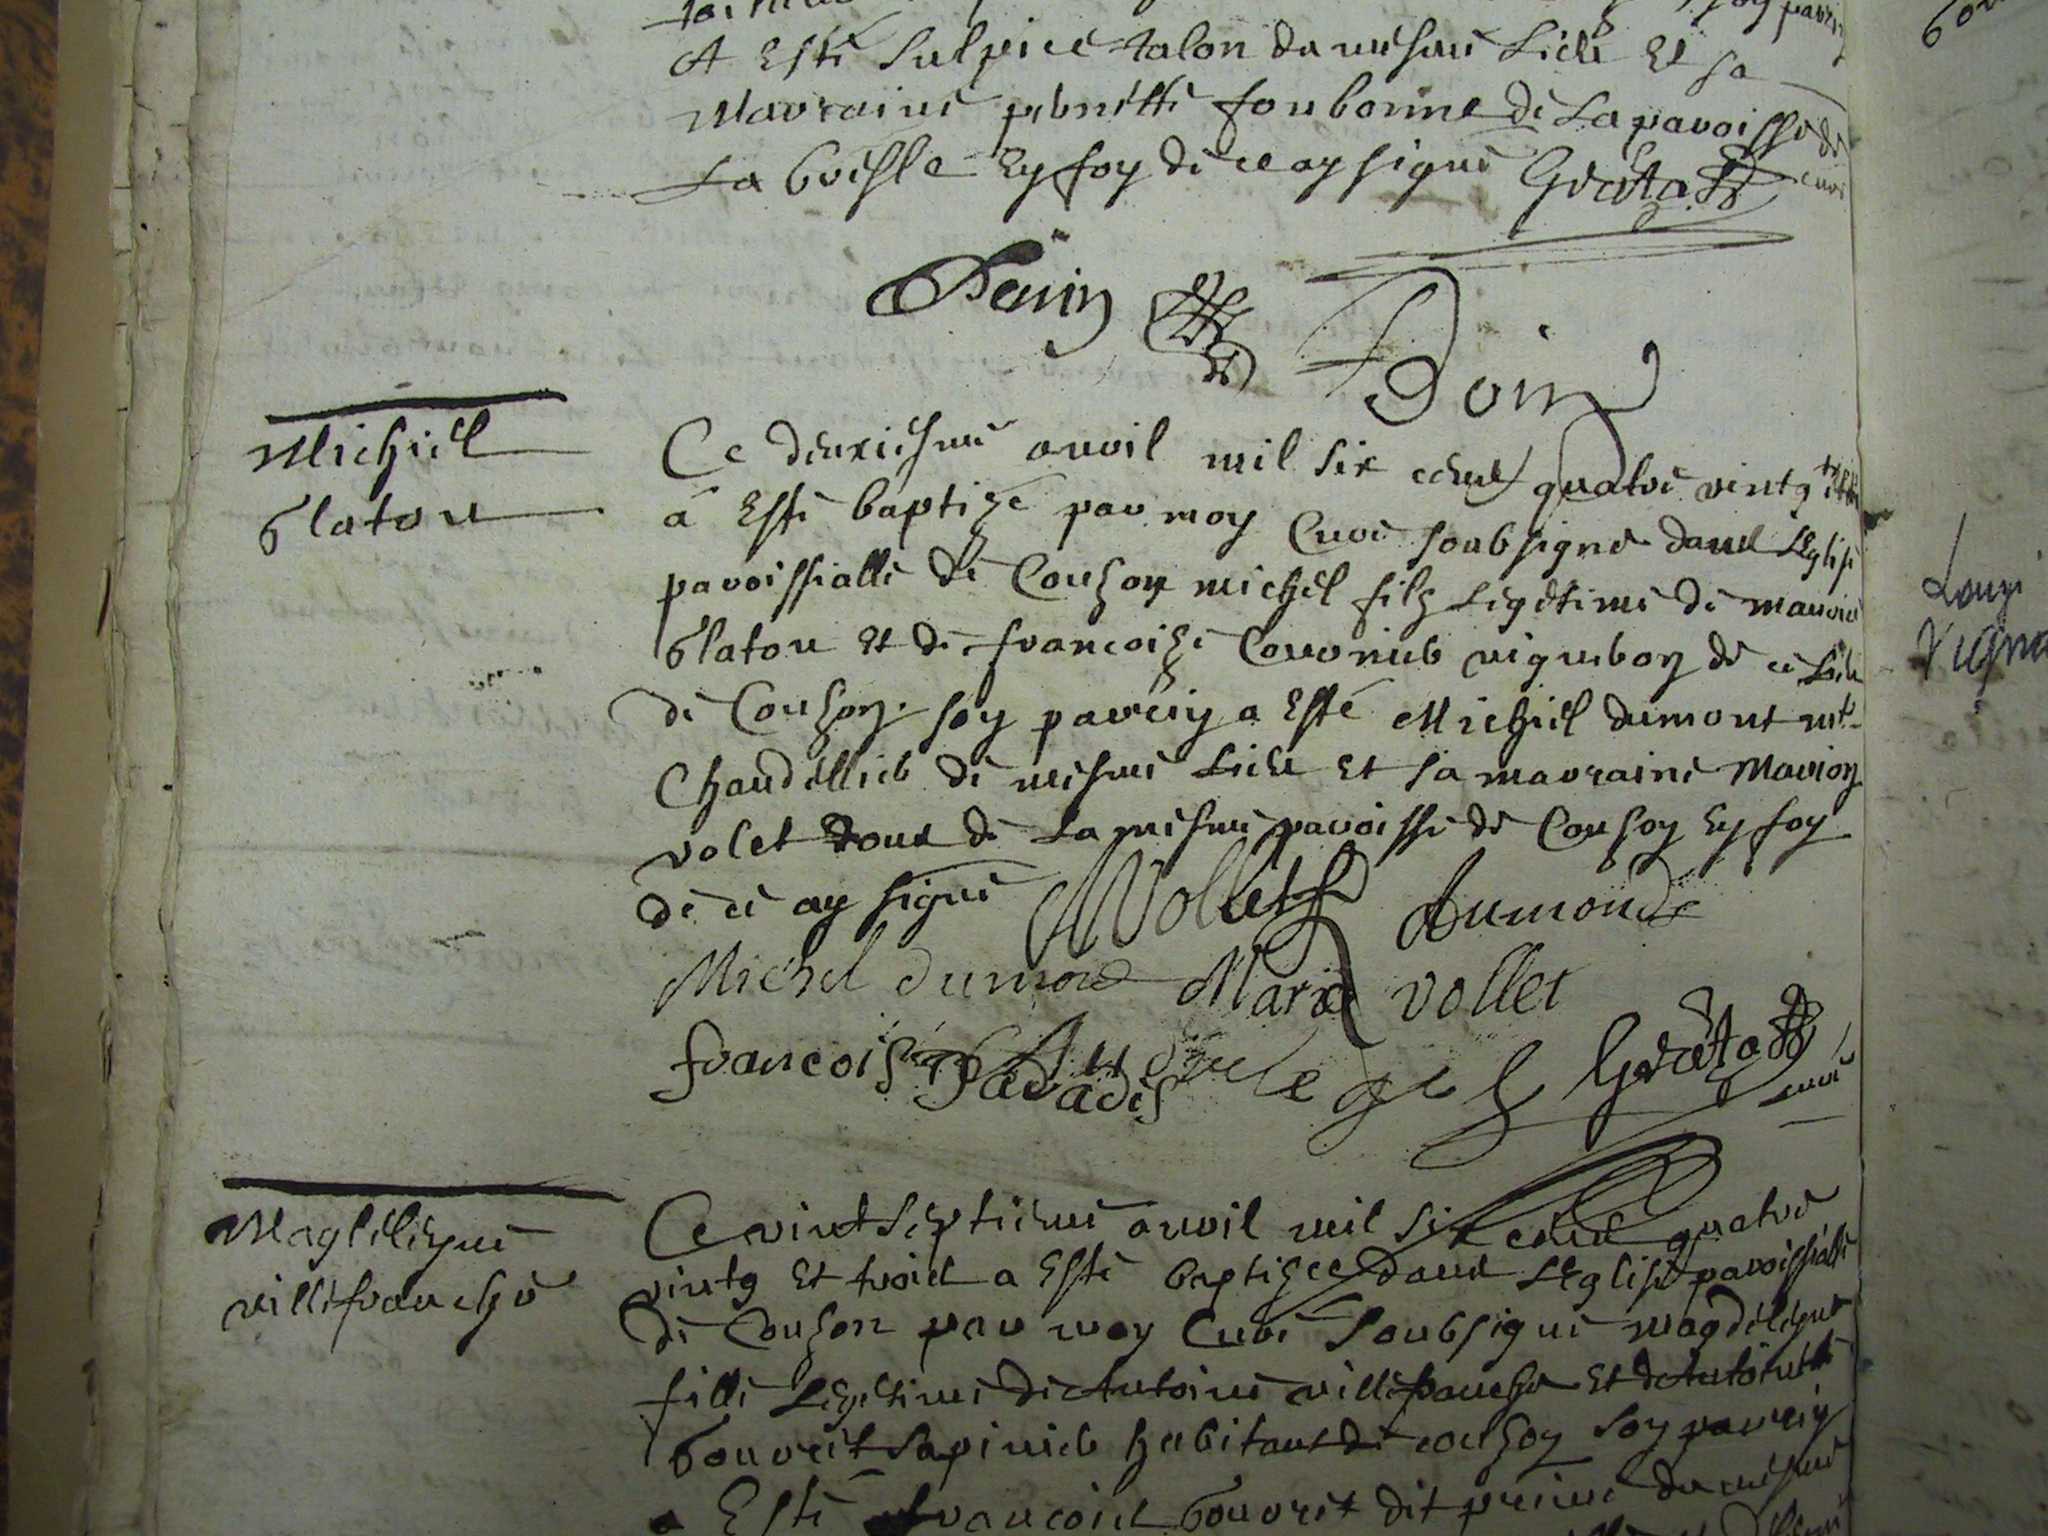 A esté Sulpice talon du mesme Lieu et sa
Marraine pernette fonbonne de La paroisse de
La bresle En foy de ce ay signé Grattas curé
Perin
Doin
Michiel
blaton
Ce deuxiesme avril mil six cent quatre vingt trois
a Esté baptizé par moy Curé soubsigné dans L'Eglise
paroissialle de Couzon michel filz Legitime de maurice
blaton et de francoize Coronieb vigneron de ce Lieu
de Couzon. son parrein a Esté Michiel dumont mt
Chandellier de mesme Lieu et sa marraine Marion
volet tous de La mesme paroisse de Couson En foy
de ce ay signé MVollet dumond
Michel dumond Marie vollet
francoise Paradis Grattas curé
Magdeleyne
villefranche
Ce vint septiesme avril mil six cent quatre
vintg et trois a Esté baptizee dans L'Eglise paroissialle
de Couzon par moy Curé soubsigné magdeleyne
fille Legitime de Antoine villefranche et de Antoinette
bouret sapinieb habitant de couzon son parrein
a Esté francois bouret dit preine du mesme
Louyse